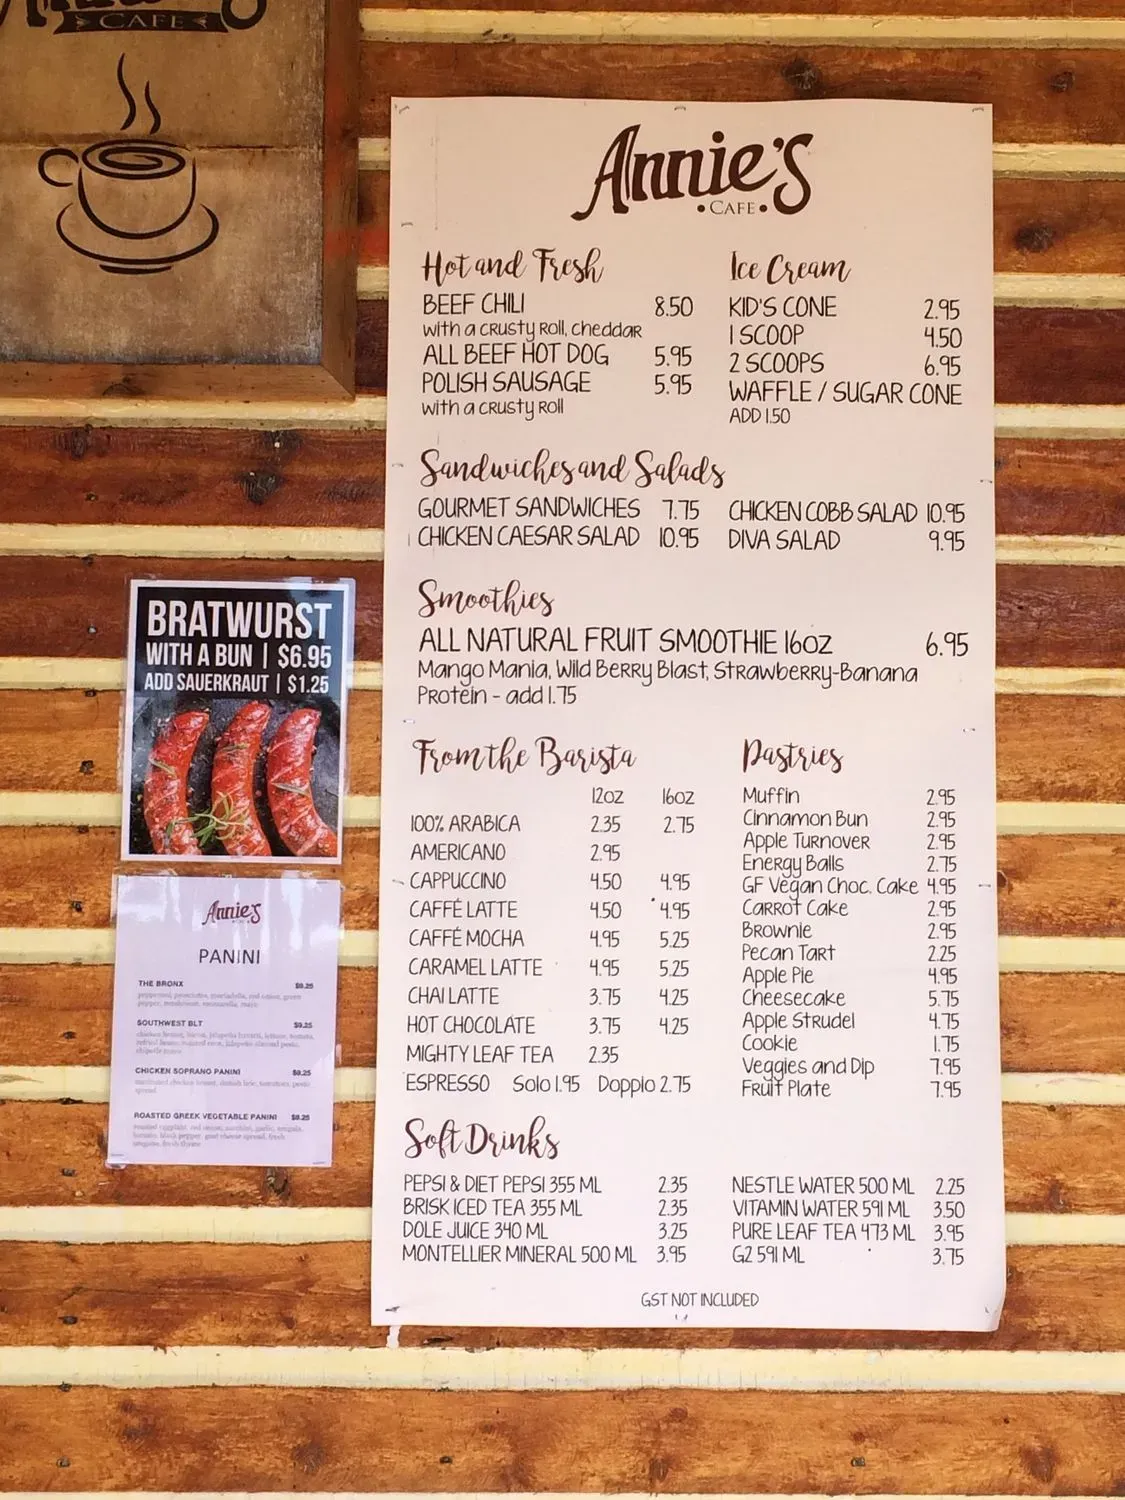 CAFE
Annie's
CAFE
Hot and Fresh
BEEF CHILI 8.50
with a crusty roll, cheddar
ALL BEEF HOT DOG 5.95
POLISH SAUSAGE 5.95
with a crusty roll
Ice Cream
KID'S CONE 2.95
1 SCOOP 4.50
2 SCOOPS 6.95
WAFFLE / SUGAR CONE
ADD 1.50
Sandwiches and Salads
GOURMET SANDWICHES 7.75
CHICKEN CAESAR SALAD 10.95
CHICKEN COBB SALAD 10.95
DIVA SALAD 9.95
Smoothies
ALL NATURAL FRUIT SMOOTHIE 16oz 6.95
Mango Mania, Wild Berry Blast, Strawberry-Banana
Protein - add 1.75
From the Barista
12oz 16oz
100% ARABICA 2.35 2.75
AMERICANO 2.95
CAPPUCCINO 4.50 4.95
CAFFÉ LATTE 4.50 4.95
CAFFÉ MOCHA 4.95 5.25
CARAMEL LATTE 4.95 5.25
CHAI LATTE 3.75 4.25
HOT CHOCOLATE 3.75 4.25
MIGHTY LEAF TEA 2.35
ESPRESSO Solo 1.95 Doppio 2.75
Pastries
Muffin 2.95
Cinnamon Bun 2.95
Apple Turnover 2.95
Energy Balls 2.75
GF Vegan Choc. Cake 4.95
Carrot Cake 2.95
Brownie 2.95
Pecan Tart 2.25
Apple Pie 4.95
Cheesecake 5.75
Apple Strudel 4.75
Cookie 1.75
Veggies and Dip 7.95
Fruit Plate 7.95
Soft Drinks
PEPSI & DIET PEPSI 355 ML 2.35
BRISK ICED TEA 355 ML 2.35
DOLE JUICE 340 ML 3.25
MONTELLIER MINERAL 500 ML 3.95
NESTLE WATER 500 ML 2.25
VITAMIN WATER 591 ML 3.50
PURE LEAF TEA 473 ML 3.95
G2 591 ML 3.75
GST NOT INCLUDED
BRATWURST
WITH A BUN | $6.95
ADD SAUERKRAUT | $1.25
Annie's
PANINI
THE BRONX $9.25
pepperoni, prosciutto, mortadella, red onion, green
pepper, mushroom, mozzarella, mayo
SOUTHWEST BLT $9.25
chicken breast, bacon, jalapeño havarti, lettuce, tomato,
refried beans, roasted corn, jalapeño almond pesto,
chipotle mayo
CHICKEN SOPRANO PANINI $9.25
marinated chicken breast, danish brie, tomatoes, pesto
spread
ROASTED GREEK VEGETABLE PANINI $9.25
roasted eggplant, red onion, zucchini, garlic, arugula,
tomato, black pepper, goat cheese spread, fresh
oregano, fresh thyme